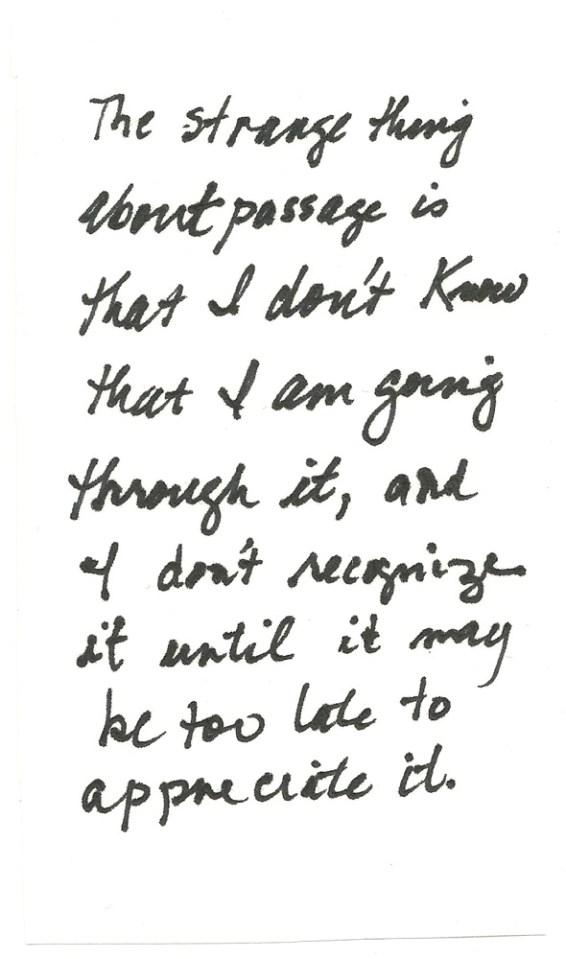 The strange thing
about passage is
that I don't know
that I am going
through it, and
I don't recognize
it until it may
be too late to
appreciate it.